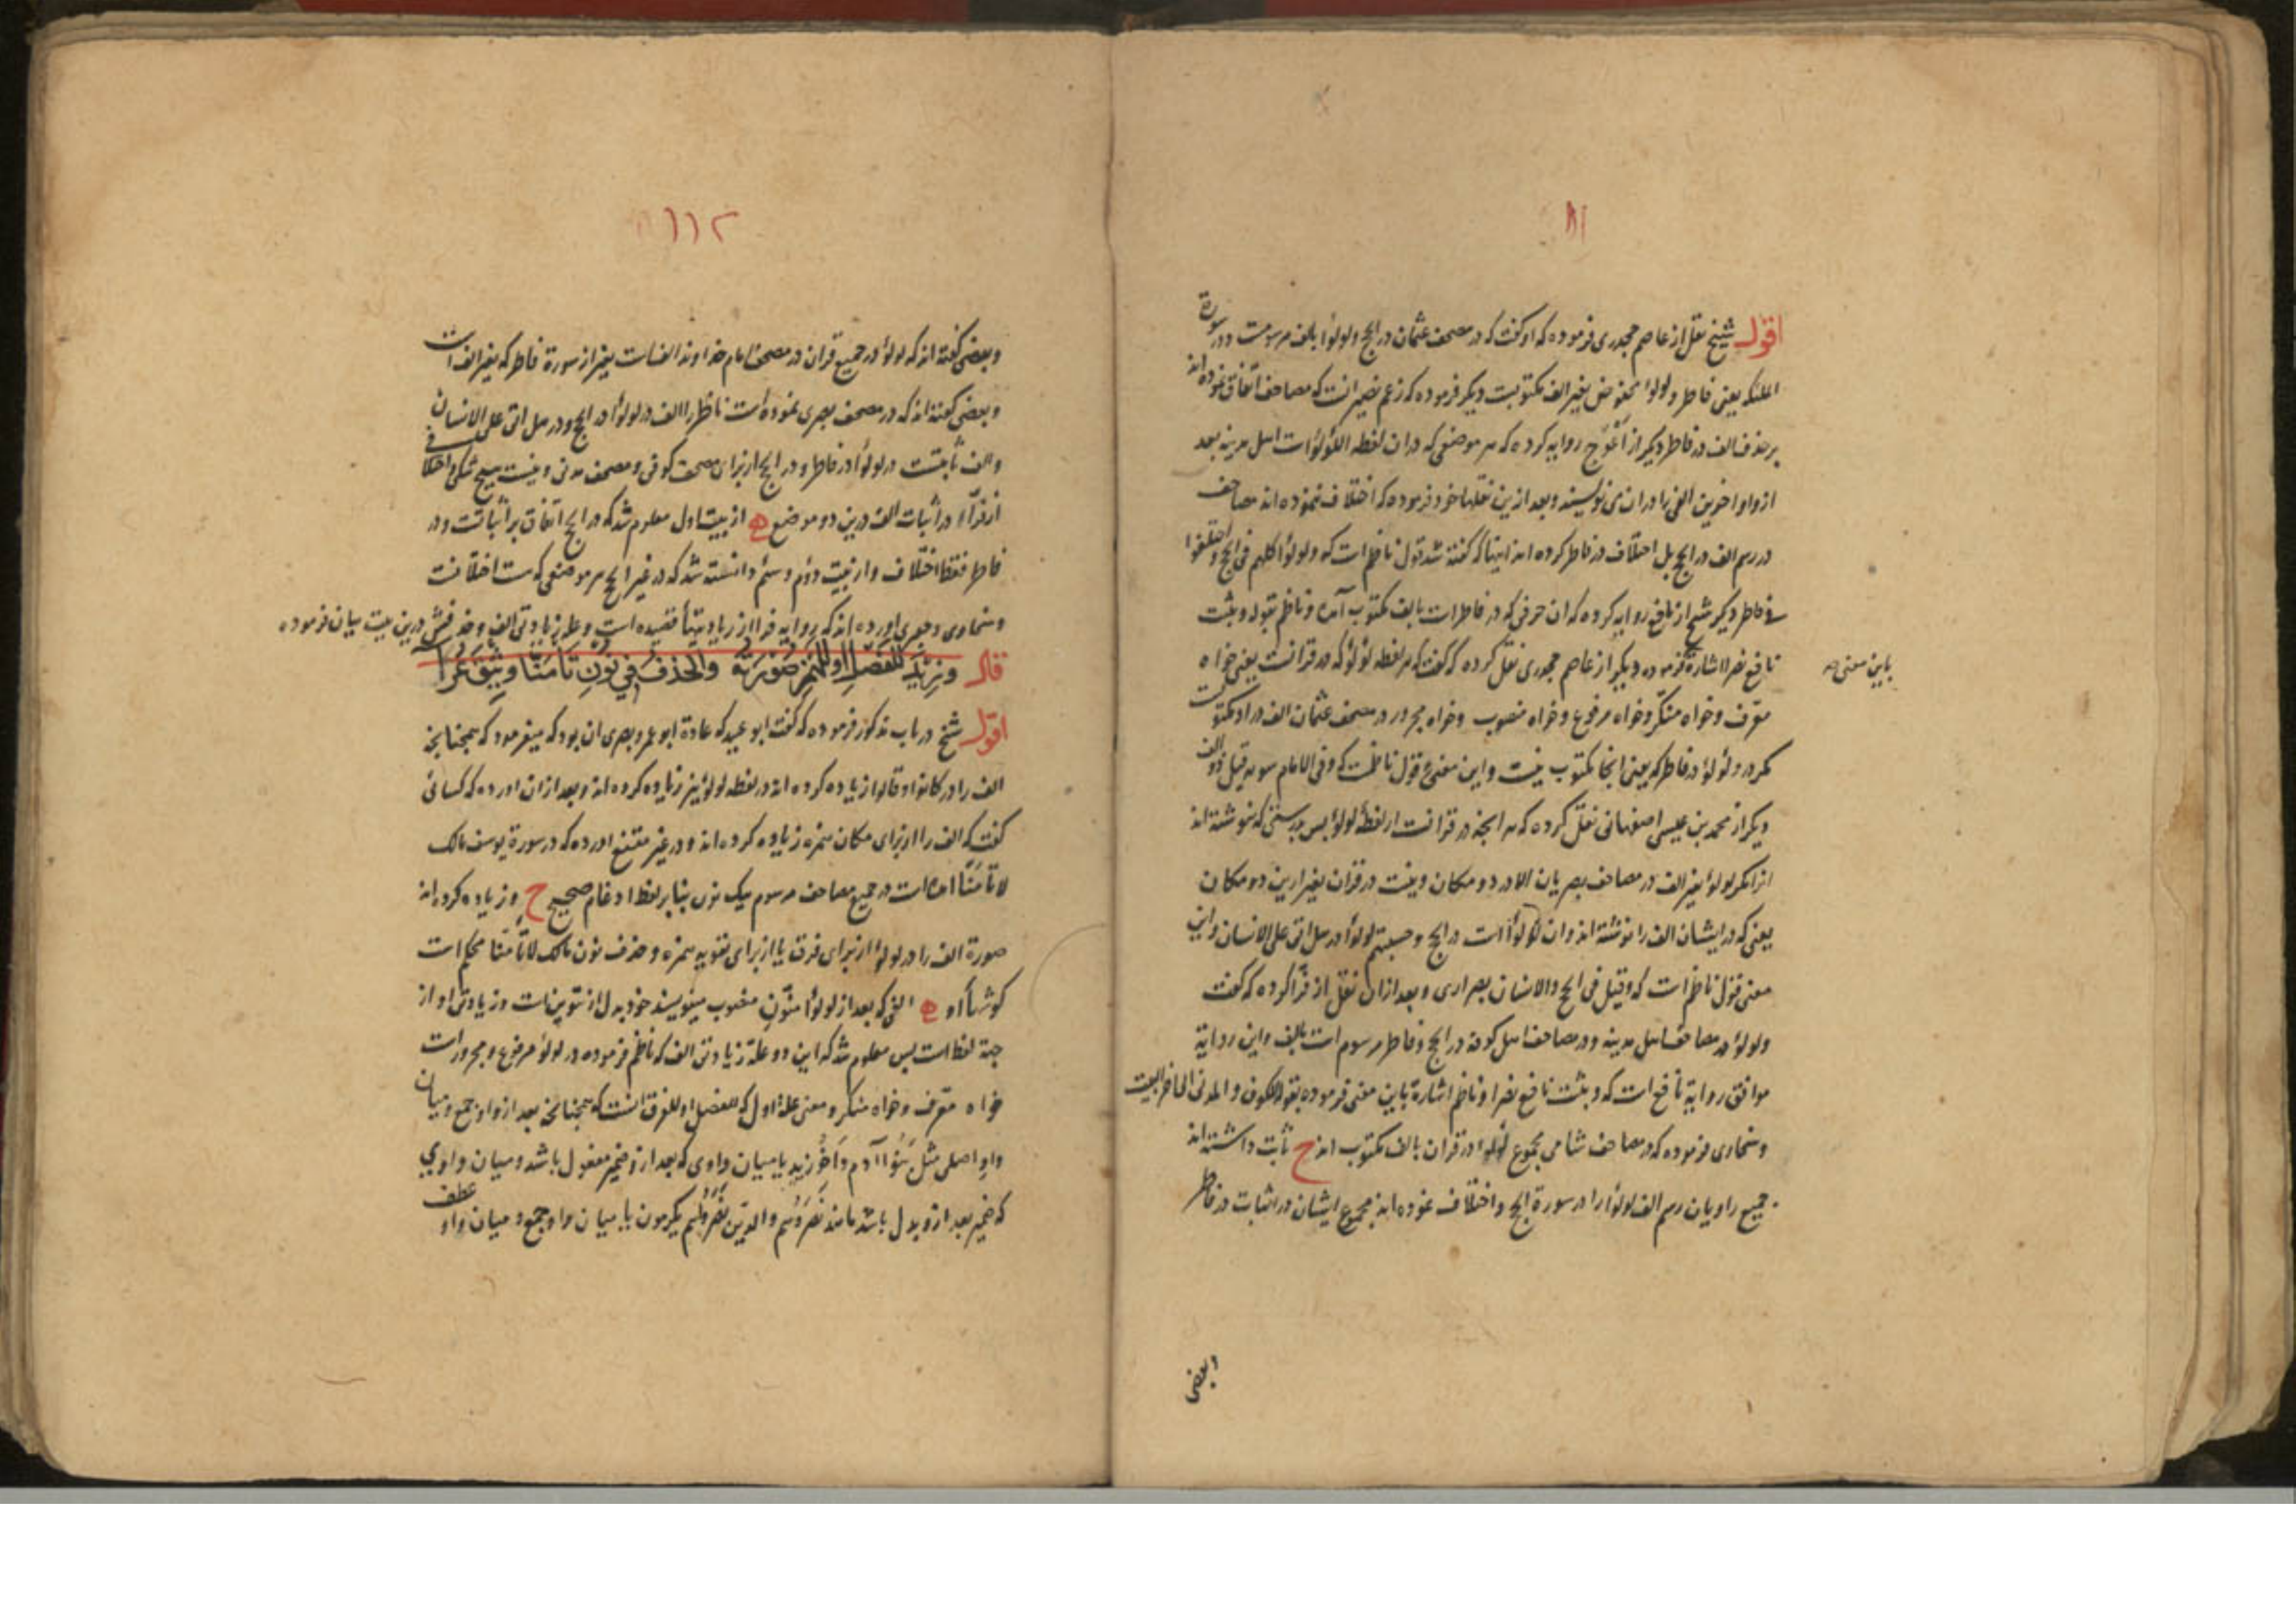 ۱۱۱
اقول شیخ نقل از عاصم جحدری فرموده که او گفت که در مصحف عثمان در الحج ولولوا بالف مرسومست ودر سورة
الملئکه یعنی فاطر ولولوا مخفوض بغیر الف مکتوبست دیگر فرموده که زعم نصیر انست که مصاحف اتفاق نموده اند
بر حذف الف در فاطر دیگر از اعرج روایه کرده که هر موضعی که در ان لفظ اللؤلؤ است اهل مدینه بعد
از واو اخیرین الفی را در ان می نویسند وبعد ازین نقلها خود فرموده که اختلاف ننموده اند مصاحف
در رسم الف در الحج بل اختلاف در فاطر کرده اند اینها که گفته شد قول ناظم است که ولولوا کلهم فی الحج واختلفوا
فی فاطر دیگر شیخ از نافع روایه کرده که ان حرفی که در فاطر است بالف مکتوب آمده وناظم بقوله وبثبت
نافع نصر اشارة فرموده دیگر از عاصم جحدری نقل کرده که گفت که هر لفظ لؤلؤ که در قرانست یعنی خواه
باین معنی صح
معرف وخواه منکر وخواه مرفوع وخواه منصوب وخواه مجرور در مصحف عثمان الف در او مکتوبست
مکر در ولؤلؤ در فاطر که یعنی انجا مکتوب نیست واین معنی قول ناظمست که وفی الامام سواه قیل ذو الف
دیگر از محمد بن عیسی اصفهانی نقل کرده که هر انچه در قرانست از لفظ لولو پس بدرستی که نوشته اند
انرا مکر لولو بغیر الف در مصاحف بصریان الا در دو مکان ونیست در قران بغیر ازین دو مکان
یعنی که در ایشان الف را نوشته اند وان لؤلؤا است در الحج وحسبتهم لولوا در هل اتی علی الانسان واین
معنی قول ناظم است که وقیل فی الحج والانسان بصر اری وبعد از ان نقل از فرا کرده که گفت
ولولوا در مصاحف اهل مدینه ودر مصاحف اهل کوفه در الحج وفاطر مرسوم است بالف واین روایة
موافق روایة نافع است که وبثبت نافع نصرا وناظم اشارة باین معنی فرموده بقوله للکوف والمدنی الی اخر البیت
وسخاوی فرموده که در مصاحف شامی مجموع لولوا در قران بالف مکتوب اند ح ثابت داشته اند
جمیع راویان رسم الف لولوا را در سورة الحج واختلاف نموده اند مجموع ایشان در اثبات در فاطر
وبعضی
۱۱۲
وبعضی گفته اند که لولوا در جمیع قران در مصحف امام خداوند الفست بغیر از سورة فاطر که بغیر الف است
وبعضی گفته اند که در مصحف بصری نموده است ناظر را الف در لولوا در الحج ودر هل اتی علی الانسان
والف ثابتست در لولوا در فاطر ودر الحج از برای مصحف کوفی ومصحف مدنی ونیست هیچ شکی واختلافی
از فراء در اثبات الف درین دو موضع ه از بیت اول معلوم شد که در الحج اتفاق بر اثباتست ودر
فاطر فقط اختلاف واز بیت دوم وسیم دانسته شد که در غیر الحج هر موضعی که هست اختلافست
وسخاوی وجعبری اورده اند که روایه فرا از زیادیتها قصیده است وعلة زیادتی الف وحذفش درین بیت بیان فرموده
قال وزید للفصل او للهمز صورته والحذف فی نون تأمنا وثیق عرا
اقول شیخ در باب مذکور فرموده که گفت ابو عبید که عادة ابو عمرو بصری ان بود که میفرمود که همچنانچه
الف را در کانوا وقالوا زیاده کرده اند در لفظ لولوا نیز زیاده کرده اند وبعد از ان اورده که کسائی
گفت که الف را از برای مکان همزه زیاده کرده اند ودر غیر مقنع اورده که در سورة یوسف مالک
لا تأمنا امده است در جمیع مصاحف مرسوم بیک نون بنابر لفظ ادغام صحیح ح وزیاده کرده اند
صورة الف را در لولوا از برای فرق یا از برای تقویه همزه وحذف نون مالک لا تأمنا محکم است
کوشها او ه الفی که بعد از لولوا منون منصوب مینویسند خود بدل از تنوینست وزیادتی او از
جهة لفظ است پس معلوم شد که این دو علة زیادتی الف که ناظم فرموده در لولو مرفوع ومجرور است
خواه معرف وخواه منکر ومعنی علة اول که للفصل او للفرق انست که همچنانچه بعد از واو جمع ومیان
واو اصلی مثل بنوا آدم واخو زید یا میان واوی که بعد از و ضمیر مفعول باشد ومیان واوی
که ضمیر بعد از و بدل باشد مانند نصروهم والذین نصروا هم یکرمون یا میان واو جمع ومیان واو عطف